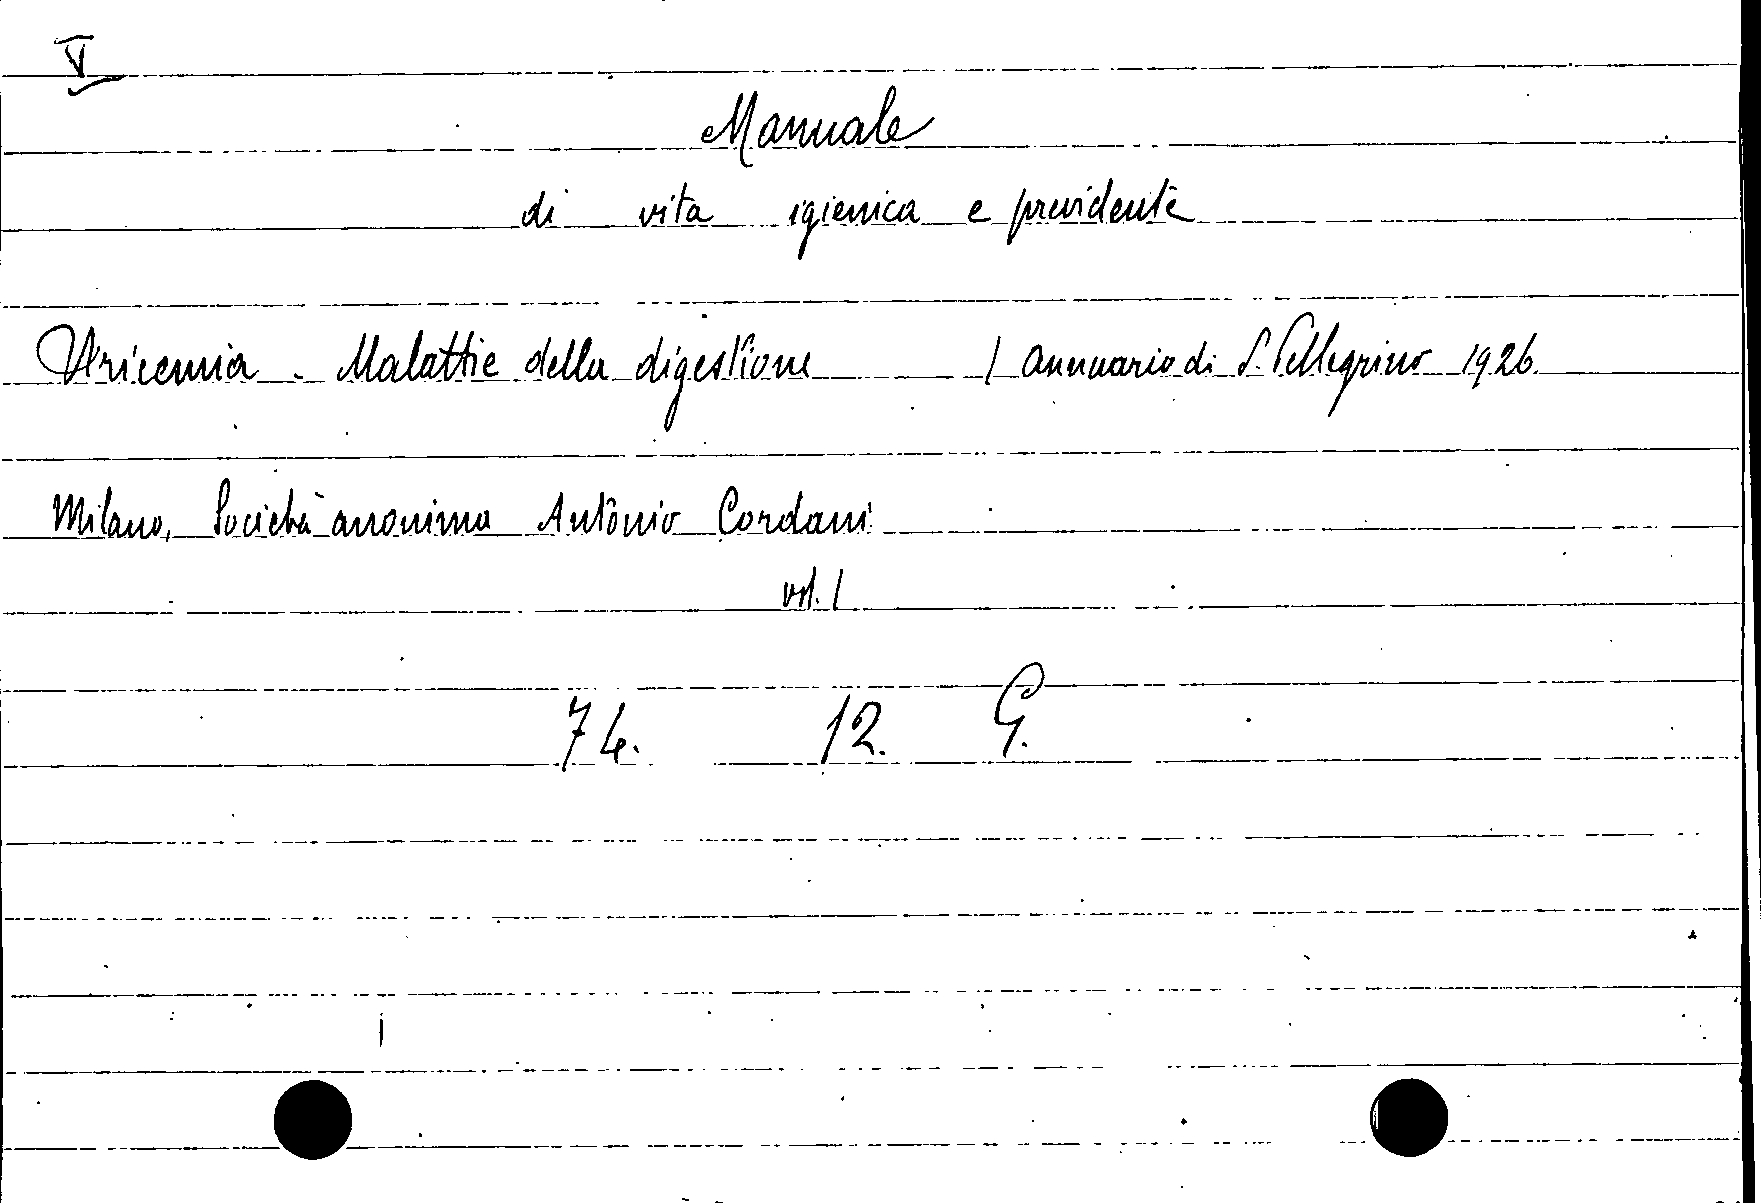 V
Manuale
di vita igienica e previdente
Uricemia - Malattie della digestione / Annuario di S. Pellegrino 1926
Milano, Società anonima Antonio Cordani
vol. 1
74. 12. G.